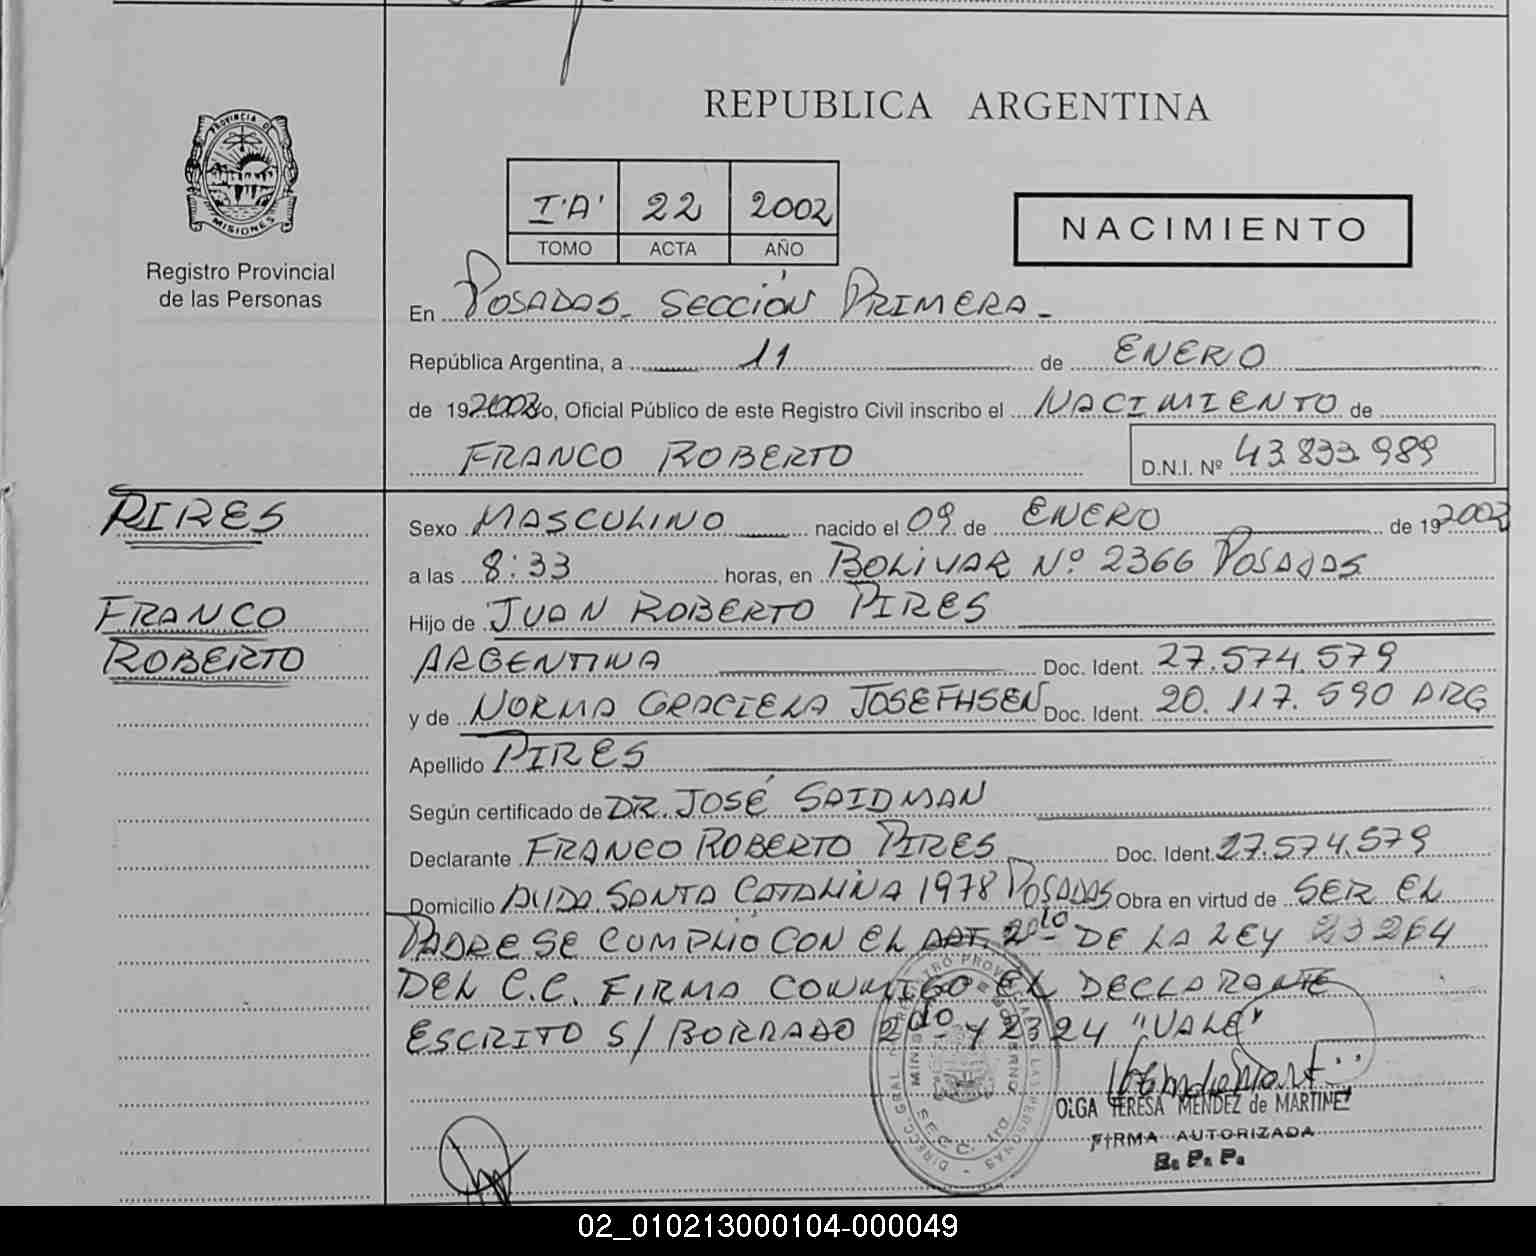 PROVINCIA DE
MISIONES
Registro Provincial
de las Personas
REPUBLICA ARGENTINA
I'A' 22 2002
TOMO ACTA AÑO
NACIMIENTO
En POSADAS SECCIÓN PRIMERA
República Argentina, a 11 de ENERO
de 19 2002 yo, Oficial Público de este Registro Civil inscribo el NACIMIENTO de
FRANCO ROBERTO D.N.I. Nº 43.833.989
PIRES
FRANCO
ROBERTO
Sexo MASCULINO nacido el 09 de ENERO de 19 2002
a las 8:33 horas, en BOLIVAR Nº 2366 POSADAS
Hijo de JUAN ROBERTO PIRES
ARGENTINA Doc. Ident. 27.574.579
y de NORMA GRACIELA JOSEFHSEN Doc. Ident. 20.117.590 ARG
Apellido PIRES
Según certificado de DR. JOSÉ SAIDMAN
Declarante FRANCO ROBERTO PIRES Doc. Ident. 27.574.579
Domicilio AVDA. SANTA CATALINA 1978 POSADAS Obra en virtud de SER EL
PADRE SE CUMPLIO CON EL ART. 2do DE LA LEY 23264
DEL C.C. FIRMA CONMIGO EL DECLARANTE
ESCRITO S/ BORRADO 2do Y 2324 "VALE"
OLGA TERESA MENDEZ de MARTINEZ
FIRMA AUTORIZADA
R. P. P.
02_010213000104-000049